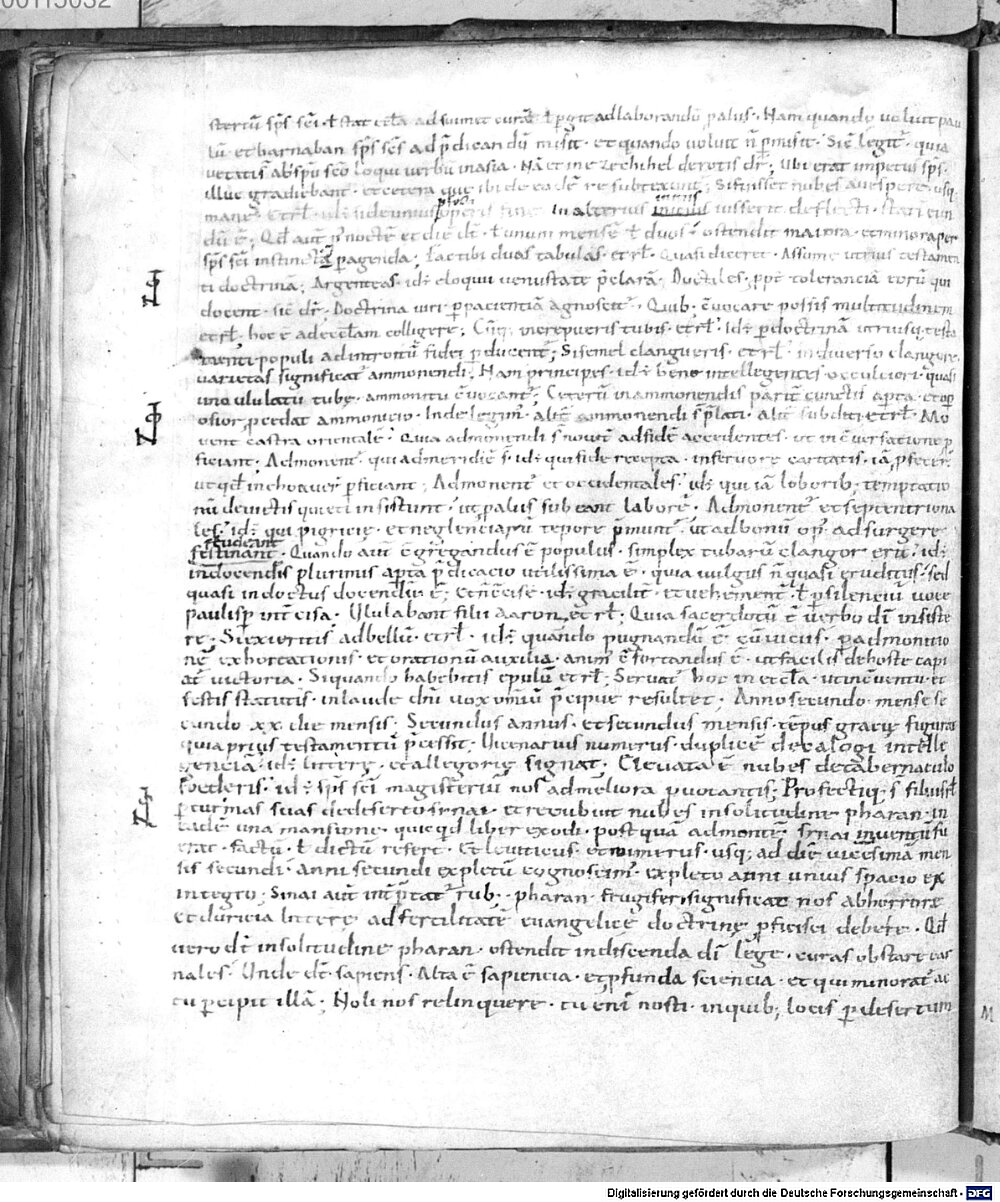 00115032
stertiu sps sci · ł stat ad suimet curā · ł ꝑgit adlaborandū palus · Nam quando voluit pau
lū · et barnaban sps scs ad p̄dicandū misit · et quando voluit n̄ p̄misit · Sic legit̄ · quia
vetati s̄ abspu sco loqui verbū inasia · Nā et in ezechihel de rotis dr̄ · Ubi erat impetus sps ·
illuc gradiebant̄ · et cetera que ibi de eadē re subtexunt̄ ; Si fuisset nubes a vespere usq;
mane · et rł · id ē
dū ē ; Qd̄ aut̄ p̄ noctē et diē dt̄ · ł unum mensē ł duos · ostendit maiora · et minora per
sps sci instinctū ꝑagenda ; Fac tibi duas tabulas · et rł · Quasi diceret · Assume utrius testamen
ti doctrinā ; Argenteas · id ē eloquii venustate p̄clarā · Ductiles · ppt̄ tolerancia eorū qui
docent · sic dr̄ ; Doctrina viri ꝑ pacientiā agnoscit̄ · Quib; c̄vocare possis multitudinem
et rł · hoc ē ad ecclam colligere ; Cūq; increpueris tubis · et rł · id ē ꝑ doctrinā utriusq; testa
menti populi ad introitū fidei ꝑducent̄ ; Si semel clangueris · et rł · in diverso clangore
varietas significat̄ ammonendi ; Nam principes · id ē bene intellegentes occulciori · quasi
uno ululatu tube · ammonitu c̄vocant̄ ; Ceterū in ammonendis parit̄ cunctis apta · et op̄
osior ꝓcedat ammonicio · Inde legim̄ · alit̄ ammonendi s̄ plati · alit̄ subditi et rł · Mo
vent castra orientalē · Quia admonendi s̄ noviter ad fidē accedentes · ut in c̄versatione p
ficiant ; Admonent̄ · qui ad meridiē s̄ · id ē qui fide recepta · in fervore caritatis · iā ꝓfecer̄
ut qd̄ inchoaver̄ ꝑficiant ; Admonent̄ et occidentales · id ē qui iā laborib; temptatio
nū devictis quieti insistunt · ut palus subeant laborē · Admonent̄ et septentriona
les · id ē qui pigricię · et neglenciarū tepore p̄munt̄ · ut ad bonū op̄ adsurgere
studeant
festinant · Quando aut̄ c̄gregandus ē populus · simplex tubarū clangor erit̄ · id ē
in docendis plurimis apta p̄dicacio utilissima ē · quia vulgus n̄ quasi eruditus · sed
quasi indoctus docendus ē ; Et n̄ c̄cise · id ē gracilit̄ · et vehement̄ · ł ꝑ silenciū voce
paulisp int̄cisa · Ululabant filii aaron · et rł ; Quia sacerdotū ē verbo di insiste
re ; Si exieritis ad bellū · et rł · id ē quando pugnandū ē c̄ viciis · ꝑ admonitio
nē exhortationis · et orationū auxilia · anim̄ c̄fortandus ē · ut facilis de hoste capi
at̄ victoria · Si quando habebitis epulū et rł ; Servat̄ hoc in eccła · ut in c̄ventu et
festis statutis · in laude dni vox omiū p̄cipue resultet ; Anno secundo · mense se
cundo · xx · die mensis ; Secundus annus · et secundus mensis · tēpus gracię figurat
quia prius testamentū p̄cessit ; Vicenarius numerus · duplicē decalogi intelle
genciā · id ē litterę · et allegorię signat · Elevata ē nubes de tabernaculo
foederis · id ē sps sci magisteriū nos ad meliora ꝓvocantis ; Profectiq; s̄ filii isrł
ꝑ turmas suas de deserto sinai · et recubuit nubes in solitudine pharan · in
eadē una mansione · quicqd liber exodi · postqua ad montē sinai inventū fu
erat · factū · ł dictū refert · Et leviticus · et numerus · usq; ad diē vicesimā men
sis secundi · anni secundi expletū cognoscim̄ · expleto anni unius spacio ex
integro ; Sinai aut̄ int̄ptat̄ rub; · pharan · frugifer · significat nos abhorrore
et duricia litterę ad fertilitatē evangelicę doctrinę ꝓficisci debere · Qd̄
vero dt̄ in solitudine pharan · ostendit in discenda di lege · curas obstare car
nales · Unde dt̄ sapiens · Alta ē sapiencia · et ꝓfunda sciencia · et qui minorat̄ ac
tu ꝑcipit illā ; Noli nos relinquere · tu eni nosti · in quib; locis ꝑ desertum
Digitalisierung gefördert durch die Deutsche Forschungsgemeinschaft · DFG